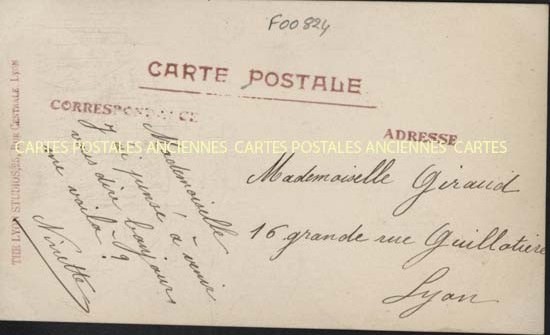 F00824
CARTE POSTALE
CORRESPONDANCE
ADRESSE
CARTES POSTALES ANCIENNES CARTES POSTALES ANCIENNES CARTES
THE LYON STUDIO, 55, RUE CENTRALE, LYON
Mademoiselle
J'ai pensé à venir
vous dire bonjour
me voilà !
Ninette
Mademoiselle Giraud
16 grande rue Guillotière
Lyon